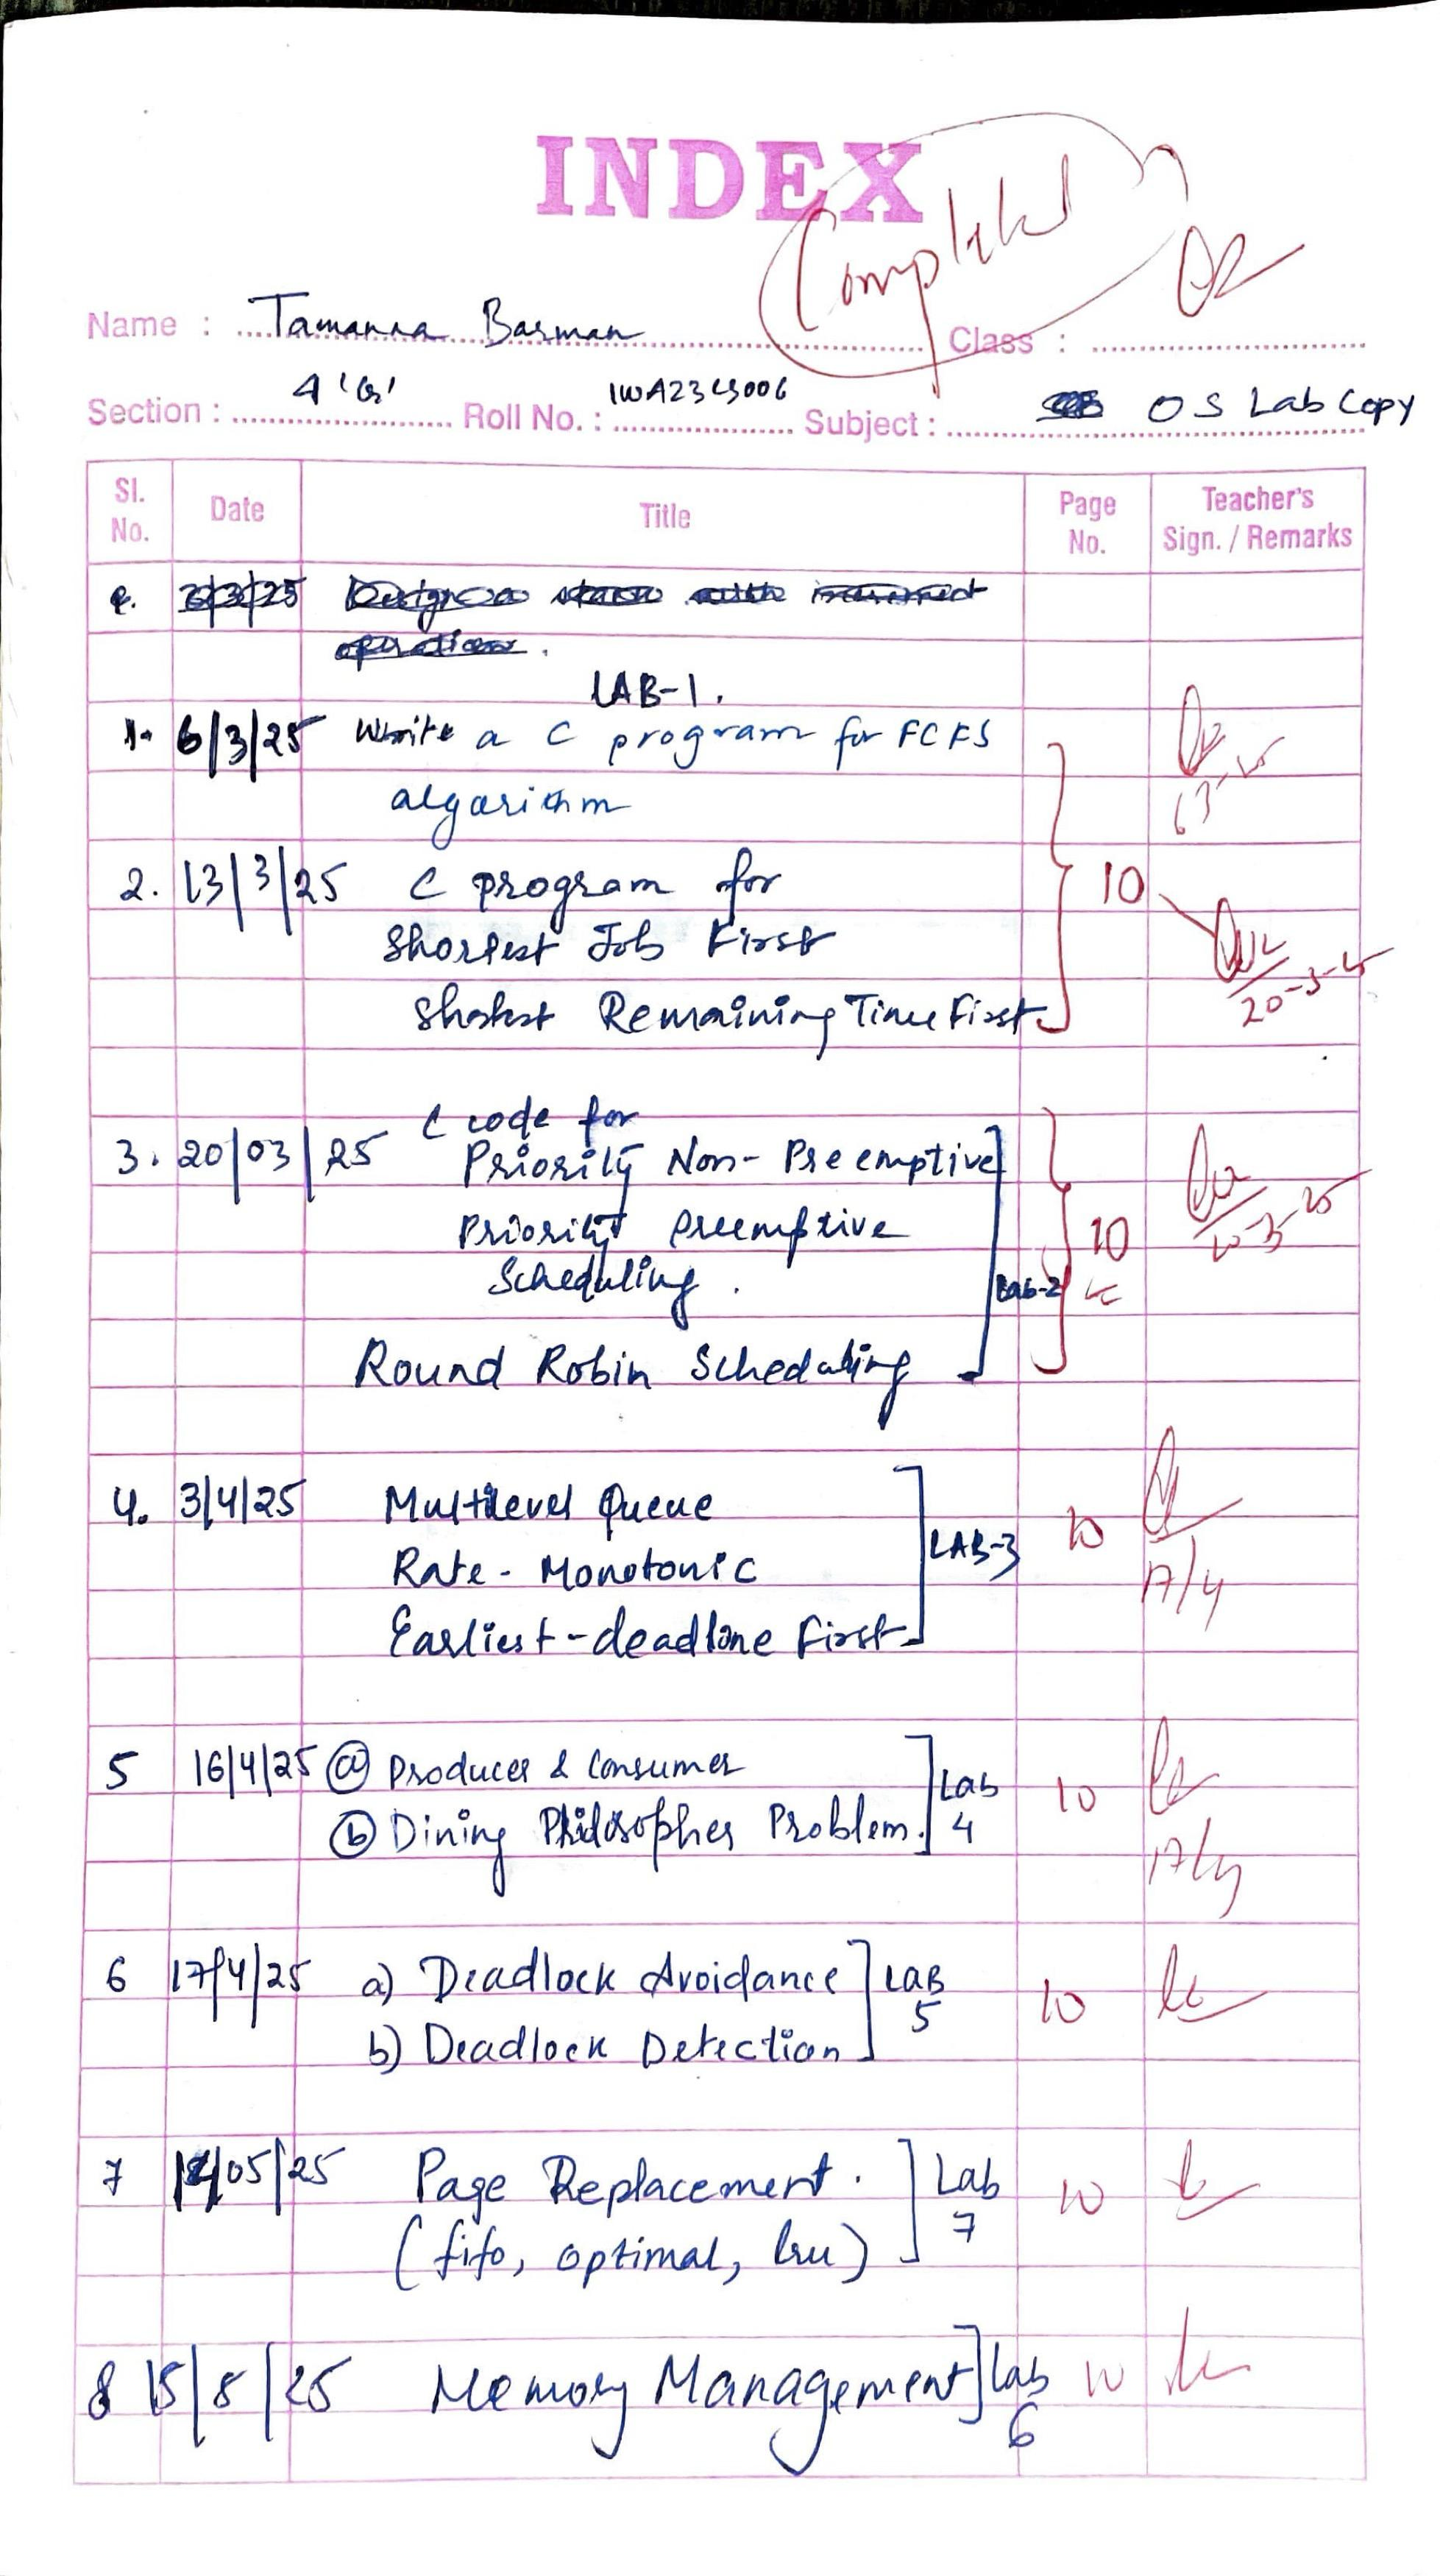 INDEX
Completed
Name : Tamanna Barman Class :
Section : 4 'G' Roll No. : 1WA23CS006 Subject : OS Lab Copy
Sl. No. Date Title Page No. Teacher's Sign. / Remarks
LAB-1.
1. 6/3/25 Write a C program for FCFS
algorithm
2. 13/3/25 C program for 10
Shortest Job First
Shortest Remaining Time First
20-3-25
C code for
3. 20/03/25 Priority Non-Preemptive
Priority Preemptive 10
Scheduling. Lab-2
Round Robin Scheduling
4. 3/4/25 Multilevel Queue
Rate-Monotonic LAB-3 10
17/4
Earliest-deadline First
5 16/4/25 (a) Producer & Consumer Lab
(b) Dining Philosopher Problem. 4 10
17/4
6 17/4/25 a) Deadlock Avoidance LAB 5 10
b) Deadlock Detection
7 /05/25 Page Replacement. Lab 7 10
(fifo, optimal, lru)
8 15/5/25 Memory Management Lab 6 10